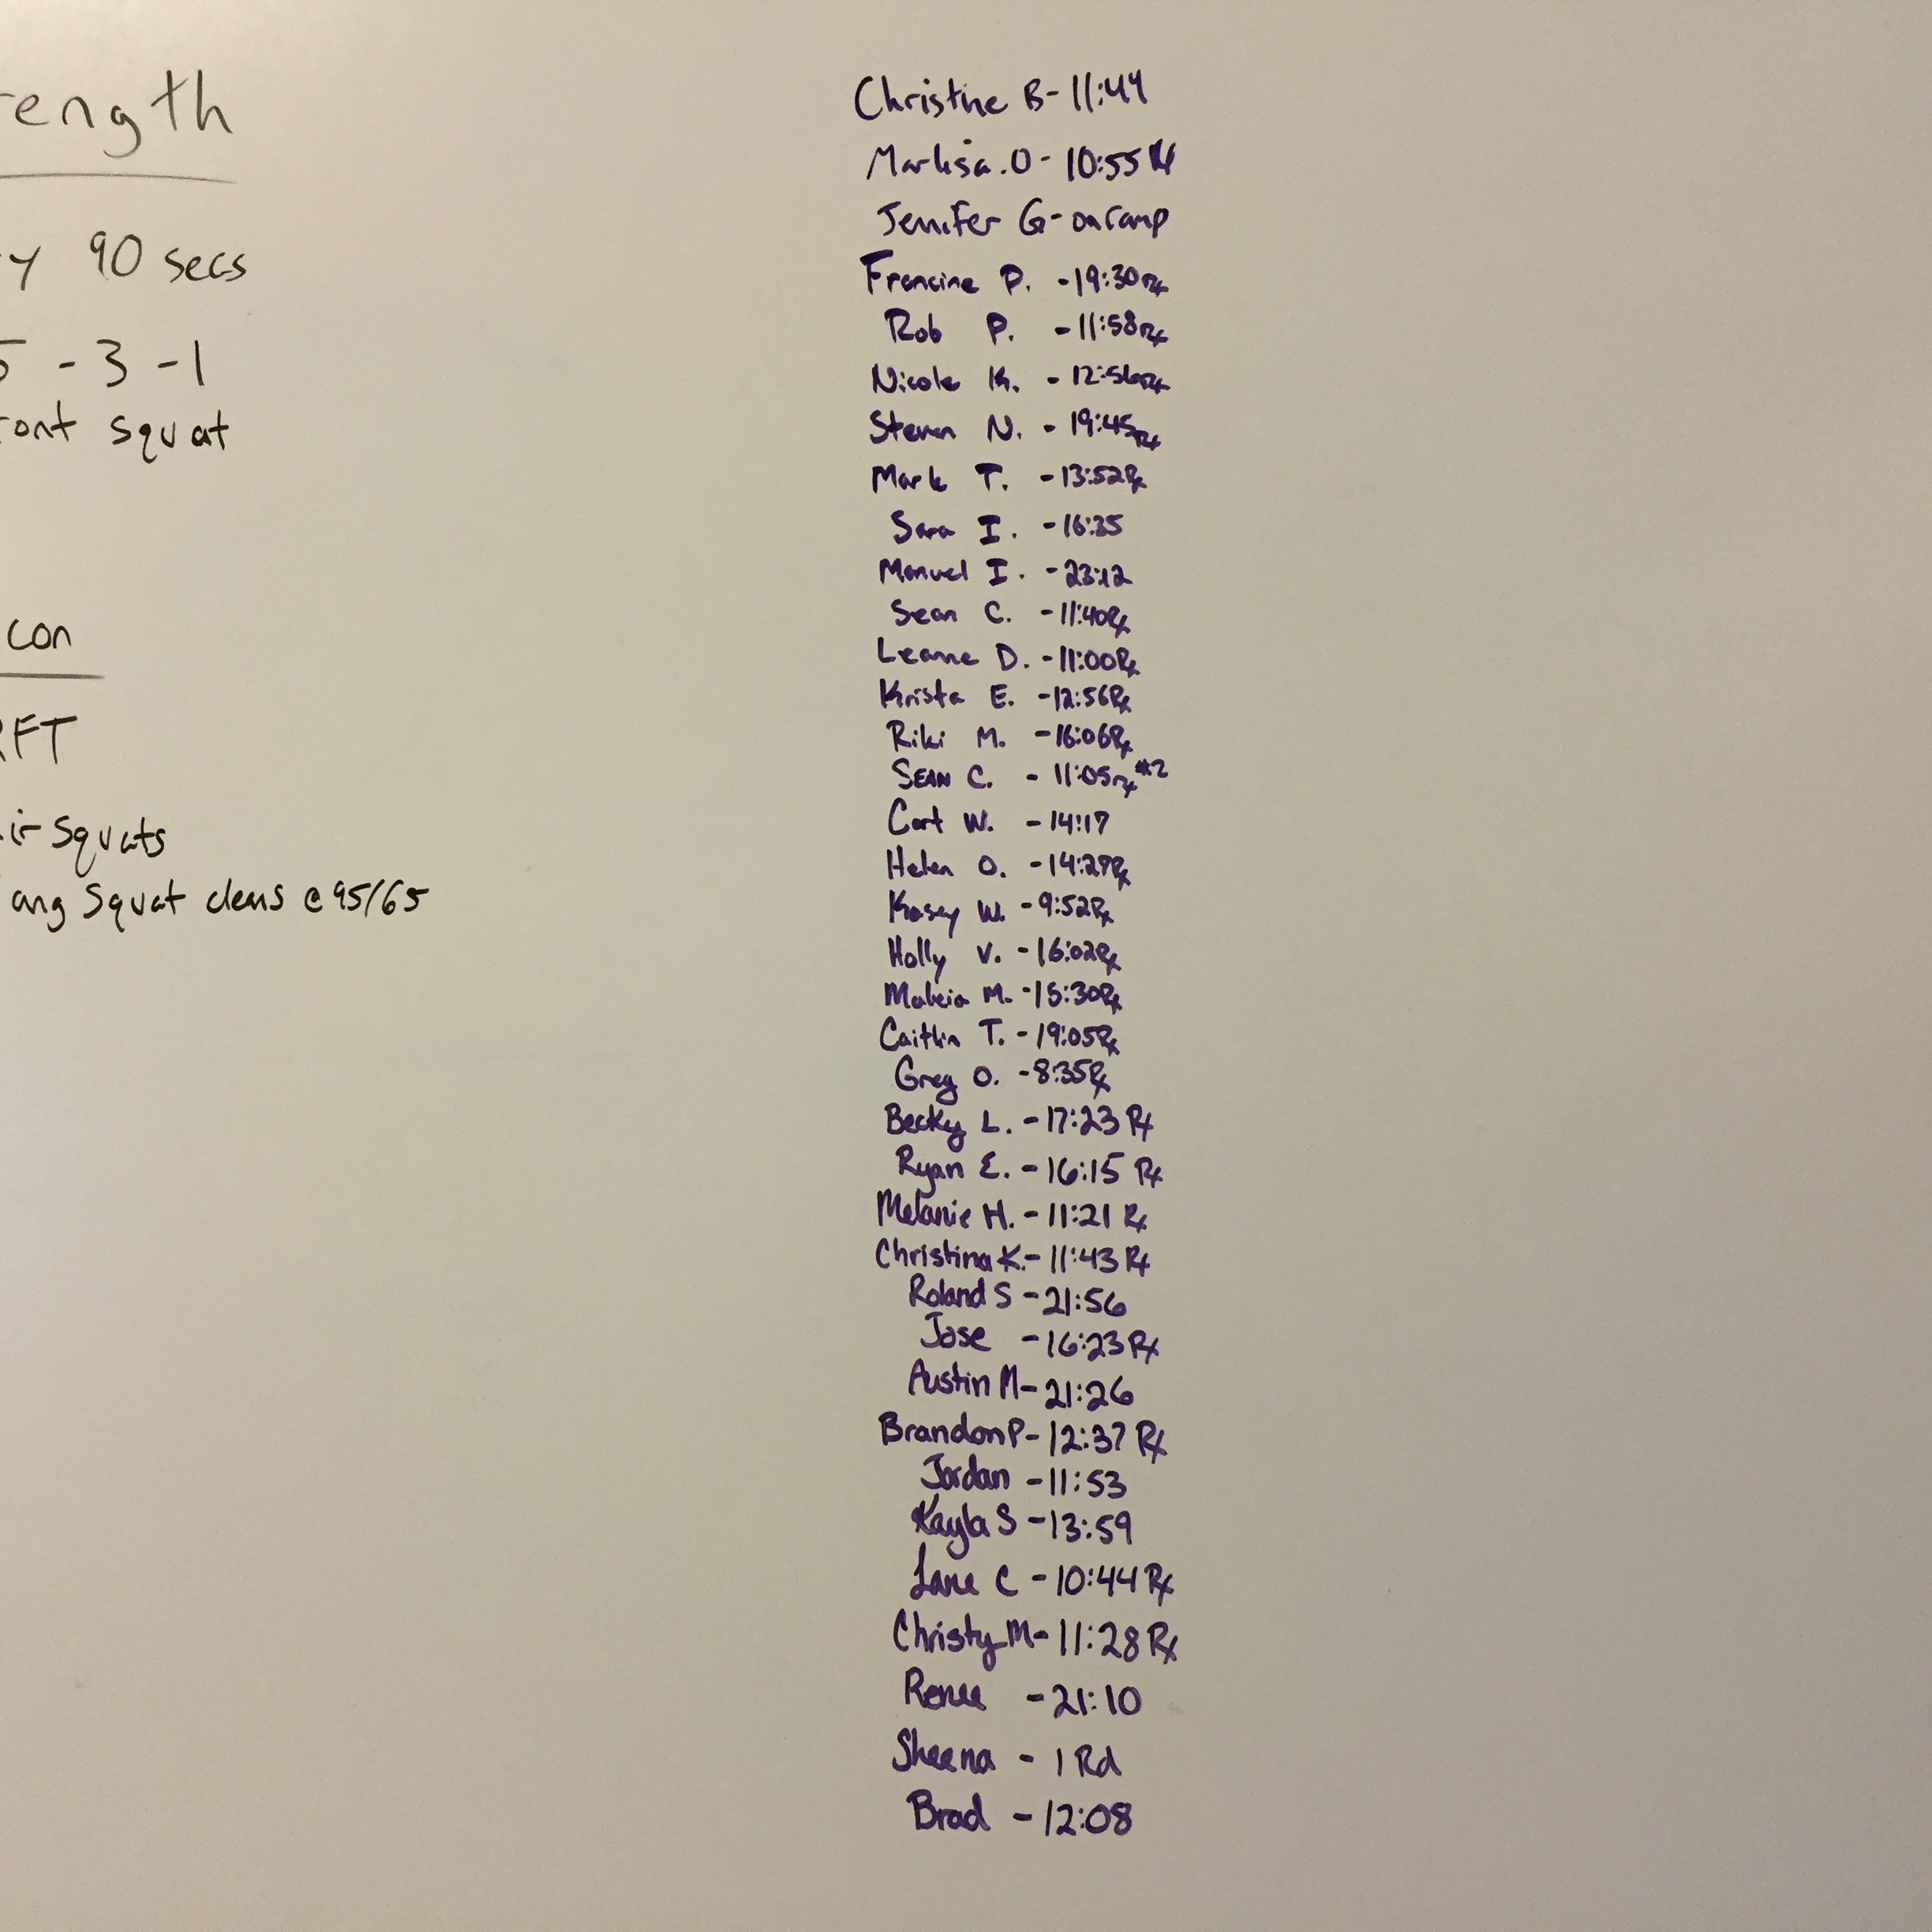 rength
y 90 secs
5 - 3 - 1
ront squat
con
RFT
ir squats
ang squat cleans @ 95/65
Christine B - 11:44
Marlisa .O - 10:55 Rx
Jennifer G - on ramp
Francine P. - 19:30 Rx
Rob P. - 11:58 Rx
Nicole K. - 12:56 Rx
Steven N. - 19:45 Rx
Mark T. - 13:52 Rx
Sara I. - 16:35
Manuel I. - 23:12
Sean C. - 11:40 Rx
Leanne D. - 11:00 Rx
Krista E. - 12:56 Rx
Riki M. - 16:06 Rx
SEAN C. - 11:05 Rx #2
W. - 14:17
Helen O. - 14:29 Rx
Kasey W. - 9:52 Rx
Holly V. - 16:02 Rx
M. - 15:30 Rx
Caitlin T. - 19:05 Rx
Greg O. - 8:35 Rx
Becky L. - 17:23 Rx
Ryan E. - 16:15 Rx
Melanie H. - 11:21 Rx
Christina K. - 11:43 Rx
Roland S - 21:56
Jose - 16:23 Rx
Austin M - 21:26
Brandon P - 12:37 Rx
Jordan - 11:53
Kayla S - 13:59
Lane C - 10:44 Rx
Christy M - 11:28 Rx
Renee - 21:10
Sheena - 1 Rd
Brad - 12:08